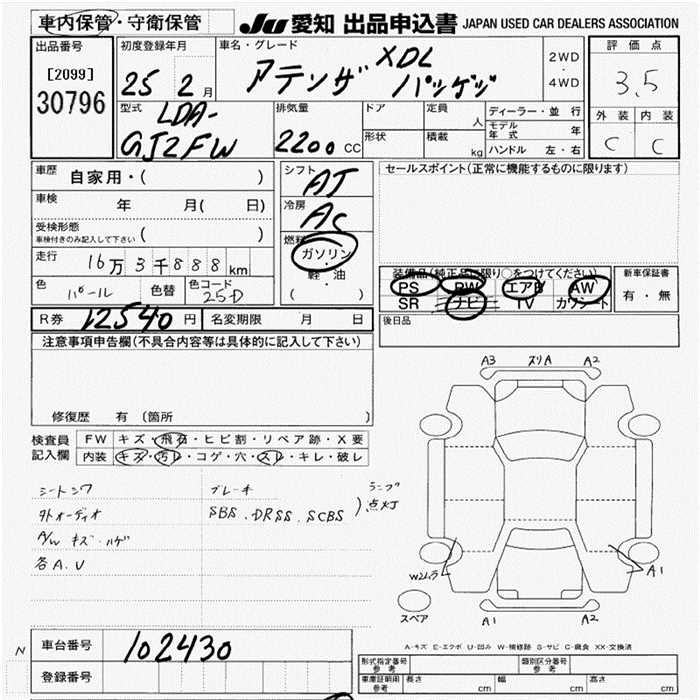 車内保管・守衛保管 JU 愛知 出品申込書 JAPAN USED CAR DEALERS ASSOCIATION
出品番号
[2099]
30796
初度登録年月
25 2 月
車名・グレード
アテンザ XDL パッケージ
2WD
・
4WD
評価点
3.5
外装 内装
C C
型式
LDA-
GJ2FW
排気量
2200 CC
ドア
形状
定員
人
積載
kg
ディーラー・並行
モデル年式 年
ハンドル 左・右
車歴 自家用・( )
車検 年 月( 日)
受検形態
車検付きのみ記入して下さい ( )
走行 16万3千888km
色 パール 色替 色コード 25D
シフト AT
冷房 AC
燃料
ガソリン
・
軽・油
( )
セールスポイント(正常に機能するものに限ります)
装備品(純正品に限り○をつけてください)
PS PW エアB AW
SR ナビ TV カワシート
新車保証書
有・無
R券 12540 円 名変期限 月 日
後日品
注意事項申告欄(不具合内容等は具体的に記入して下さい)
修復歴 有 (箇所 )
検査員
記入欄
FW キズ・飛石・ヒビ割・リペア跡・X要
内装 キズ・汚レ・コゲ・穴・スレ・キレ・破レ
シートシワ
外オーディオ
A/W キズ・ハゲ
各A.U
ブレーキ
SBS.DRSS.SCBS ) ランプ点灯
A3 スリA A2
A1
スペア
A1 A2
A-キズ E-エクボ U-凹み W-補修跡 S-サビ C-腐食 XX-交換済
N
車台番号 102430
登録番号
形式指定番号 参考
類別区分番号 参考
車庫証明用 参考
長さ cm 幅 cm 高さ cm